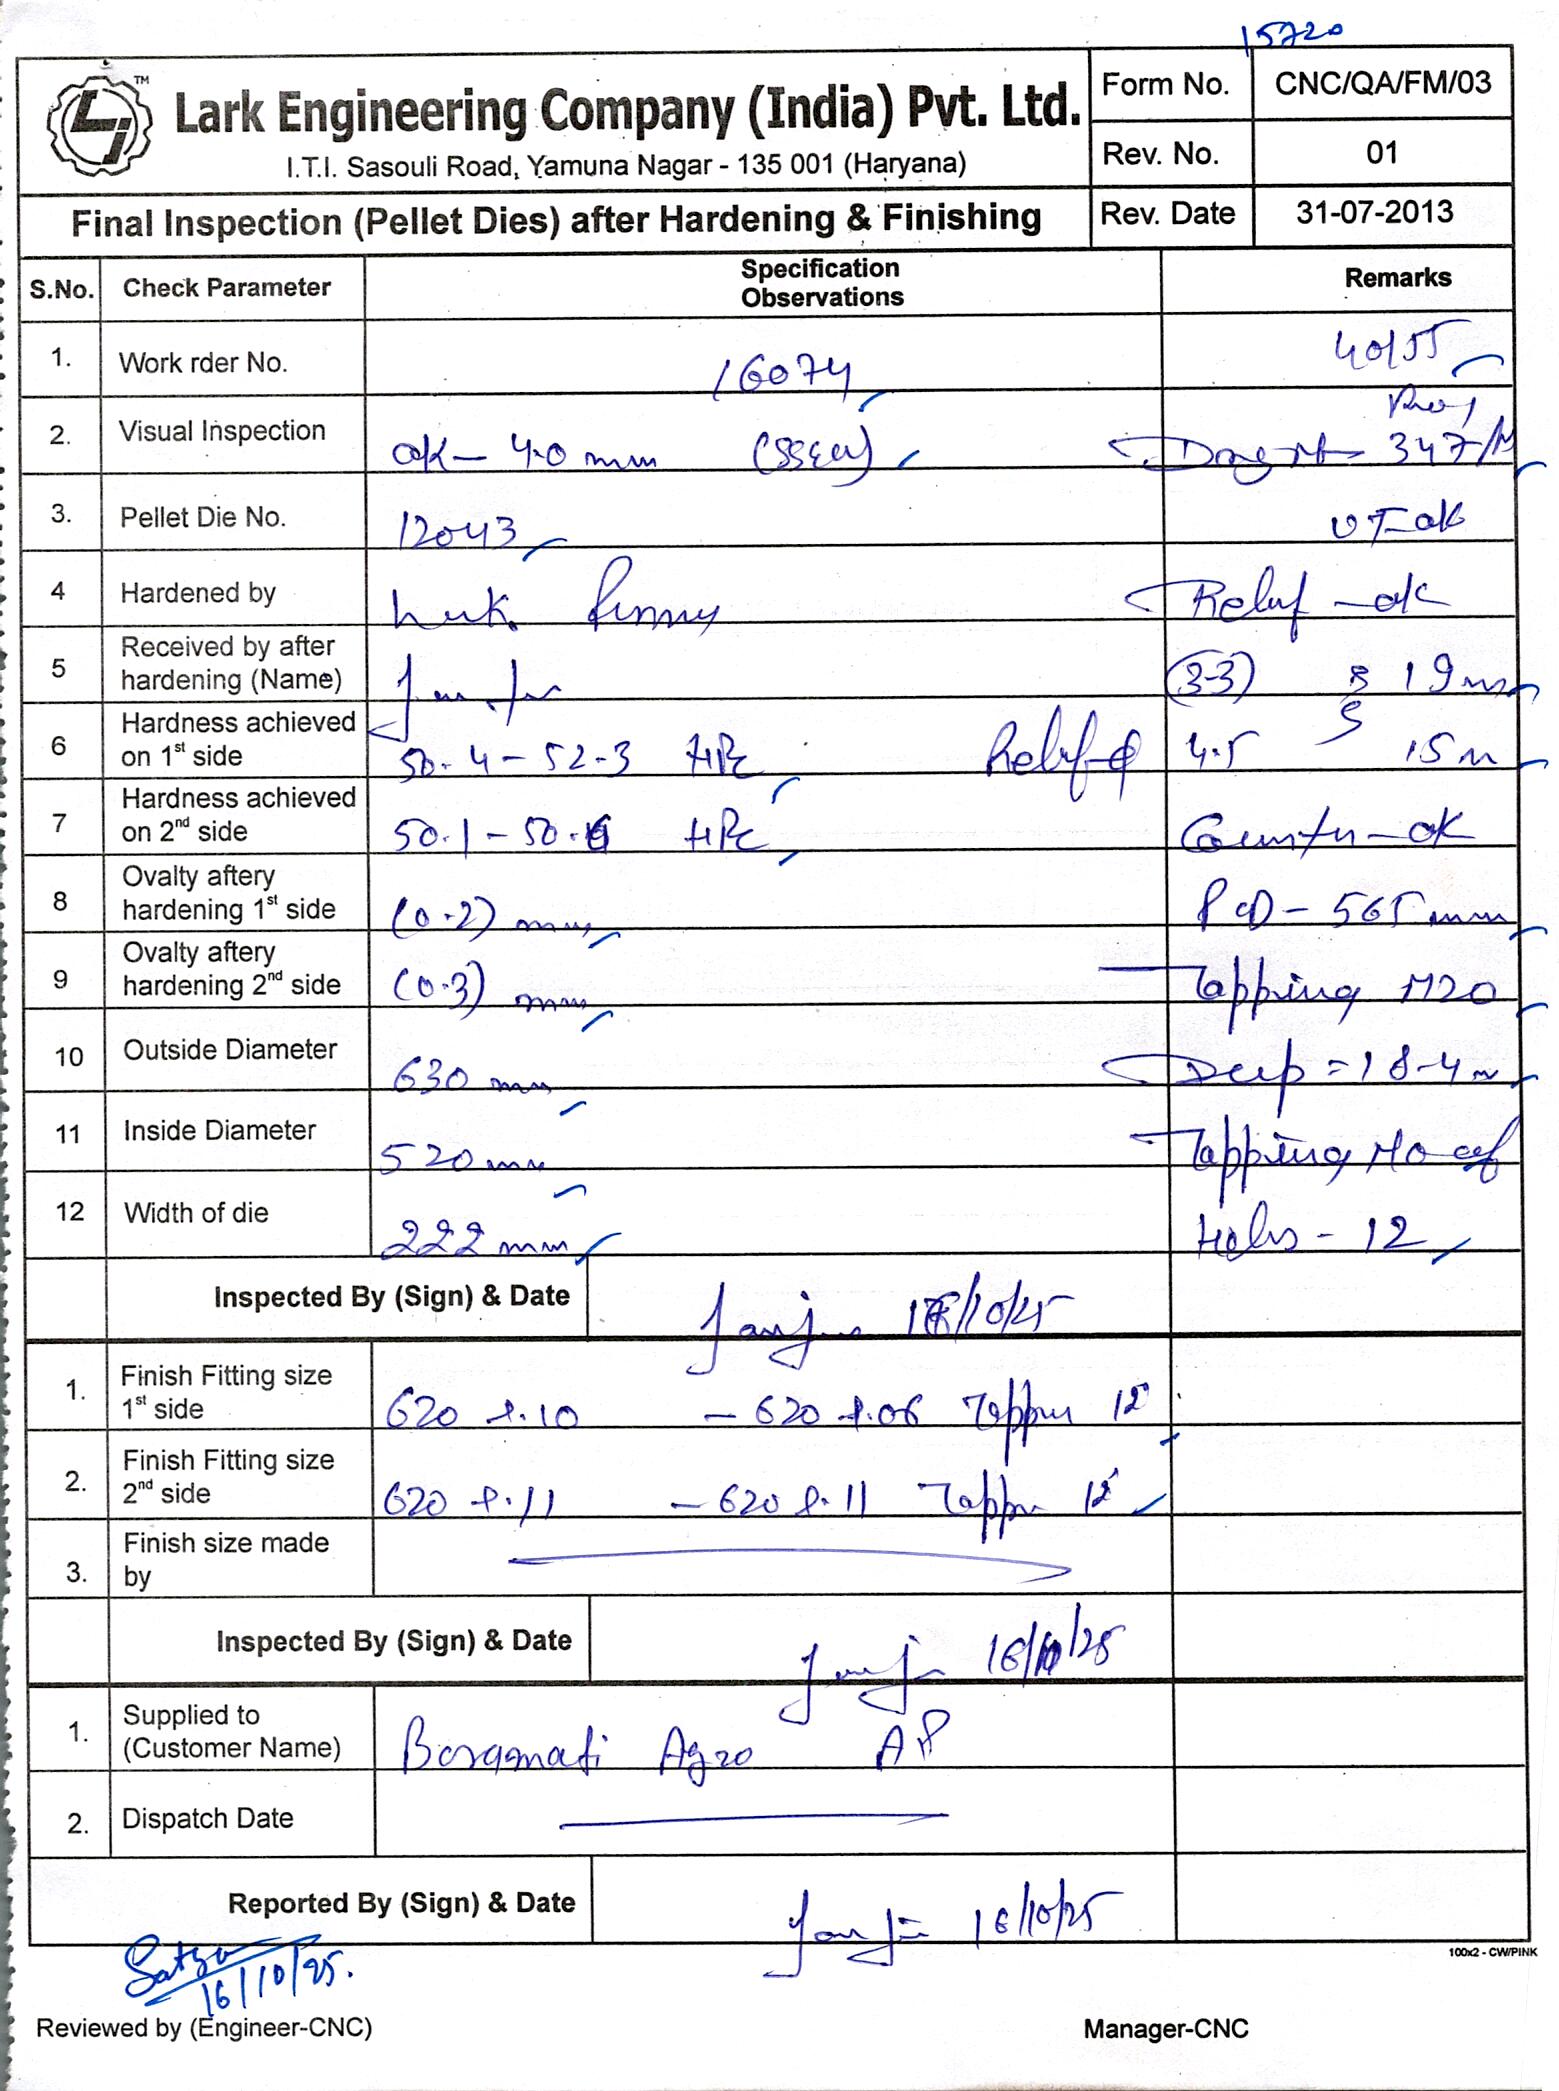 15720
TM
Lark Engineering Company (India) Pvt. Ltd.
I.T.I. Sasouli Road, Yamuna Nagar - 135 001 (Haryana)
Form No. CNC/QA/FM/03
Rev. No. 01
Final Inspection (Pellet Dies) after Hardening & Finishing
Rev. Date 31-07-2013
S.No. Check Parameter Specification Observations Remarks
1. Work rder No. 16074 40/55
2. Visual Inspection OK - 4.0 mm 347/M
3. Pellet Die No. 12043 UT-ok
4 Hardened by Relief - ok
5 Received by after hardening (Name) (3-3) 19 mm
6 Hardness achieved on 1st side 50.4 - 52.3 HRc Relief φ 4.5 15 m
7 Hardness achieved on 2nd side 50.1 - 50.6 HRc Counter - ok
8 Ovalty aftery hardening 1st side (0.2) mm PCD - 565 mm
9 Ovalty aftery hardening 2nd side (0.3) mm Tapping M20
10 Outside Diameter 630 mm Deep = 18-4 m
11 Inside Diameter 520 mm Tapping No of
12 Width of die 222 mm Holes - 12
Inspected By (Sign) & Date /10/25
1. Finish Fitting size 1st side 620 +.10 - 620 +.06 12
2. Finish Fitting size 2nd side 620 +.11 - 620 +.11 12
3. Finish size made by
Inspected By (Sign) & Date 16/10/25
1. Supplied to (Customer Name) Baramati Agro AP
2. Dispatch Date
Reported By (Sign) & Date 16/10/25
100x2 - CW/PINK
16/10/25.
Reviewed by (Engineer-CNC) Manager-CNC